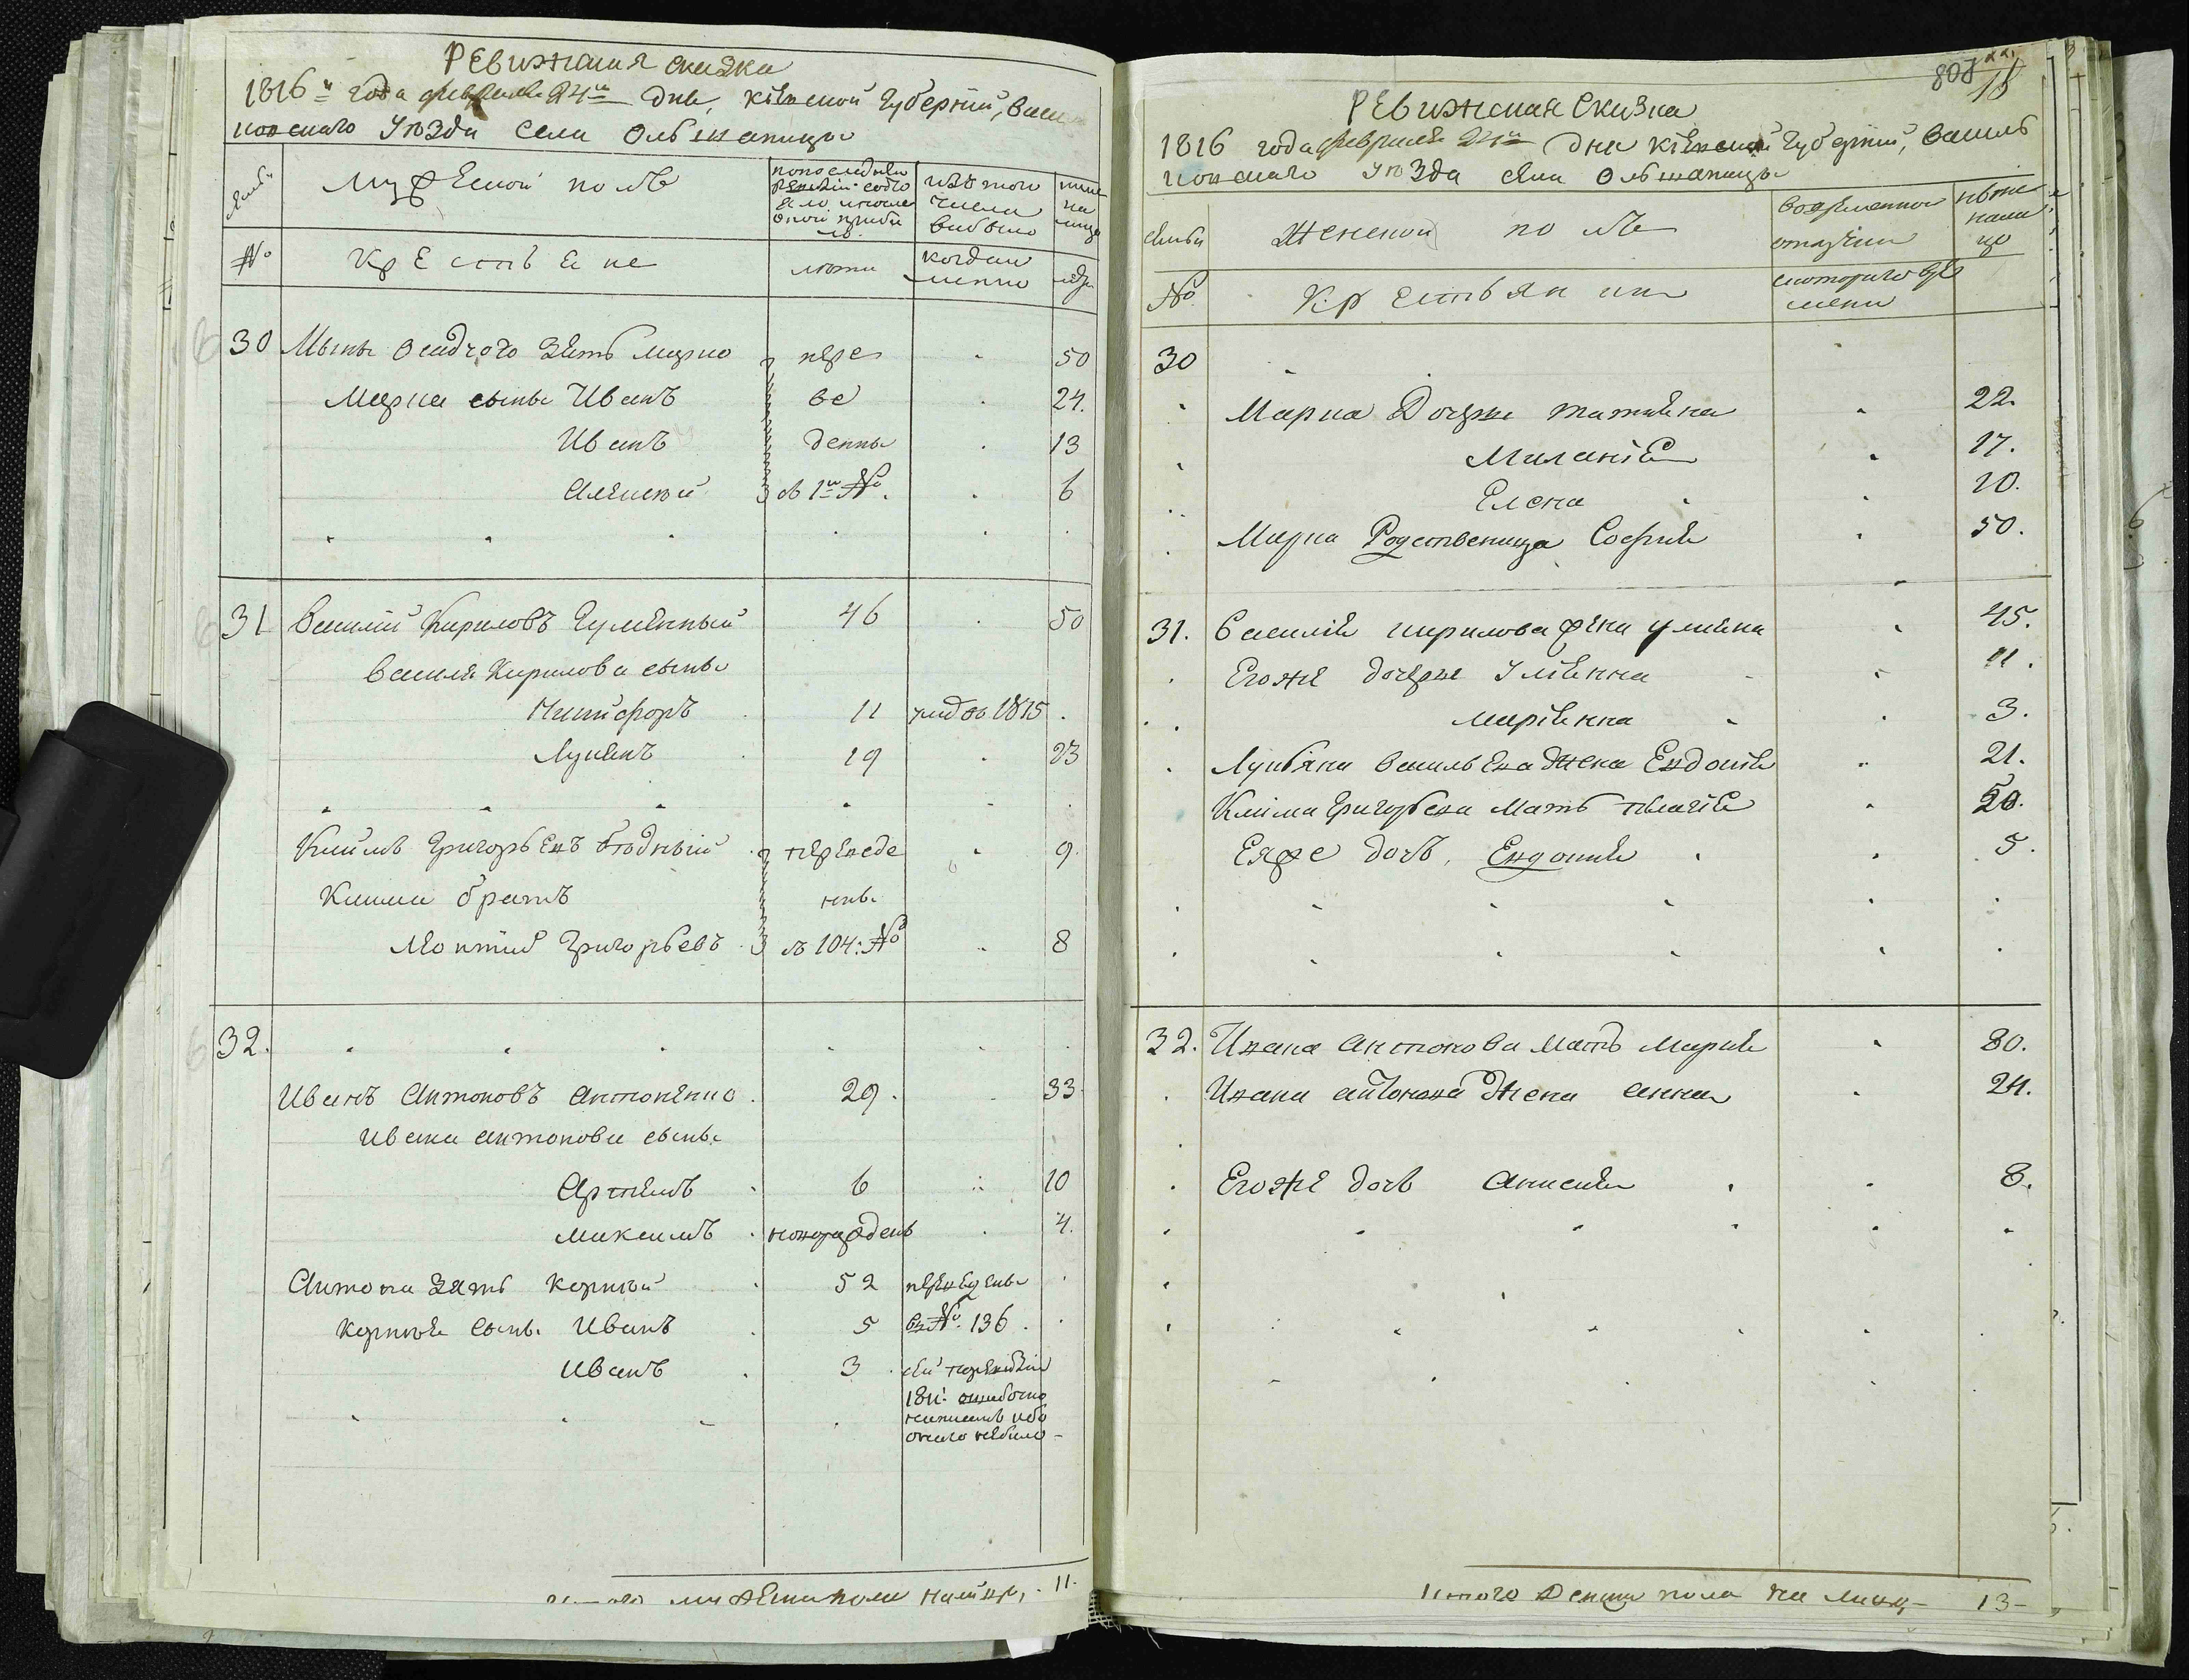 Ревижская сказка
1816го года февраля 24го дня, киевской Губернии, Васил
ковскаго Уезда Села Ольшаницы
Семьи
Мужеской полъ
по последней ревизии состояло и после оной прибыло
изъ того числа выбыло
ныне на лицо
№
Крестьяне
лета
когда имянно
лета
30 Мыны Осадчого зять Марко пере 50
Марка сыны Иванъ ве 24.
Иванъ дены 13
Алексей съ 1го №. 6
31 Василий Кириловъ Гуменный 46 50
Василя Кирилова сыны
Никифоръ 11 умд въ 1815
Лукянъ 19 23
Климъ Григорьевъ Бодный переведе 9
Клима братъ ны
Леонтий Григорьевъ съ 104: № 8
32.
Иванъ Антоновъ Антоненко 29. 33.
Ивана Антонова сыны
Артемъ 6 10
Максимъ новорожденъ 4.
Антона зять Корней 52 переведены
Корнея сыны Иванъ 5 въ № 136.
Иванъ 3 сей по ревизии
1811: ошибочно
написанъ ибо
оного небыло
Итого мужеска пола налицо 11.
808
18
Ревижская Сказка
1816 года февраля 24го дня киевской Губернии, Василь
ковскаго Уезда села Ольшаницы
Семьи
Женской полъ
во временной отлучки
ныне налицо
№
Крестьянки
с котораго времени
30
Марка Дочери татияна 22.
Милания 17.
Елена 10.
Марка Родственица София 50.
31. Василия кирилова жена улияна 45.
Егоже дочери Улиянна 11.
мариянна 3.
Лукьяна васильева жена Евдокия 21.
Клима Григорьева мать 50.
Еяже дочь, Евдокия 5.
32. Ивана Антонова мать Мария 80.
Ивана антонова жена анна 24.
Егоже дочь Анисия 8.
Итого женска пола на лицо 13